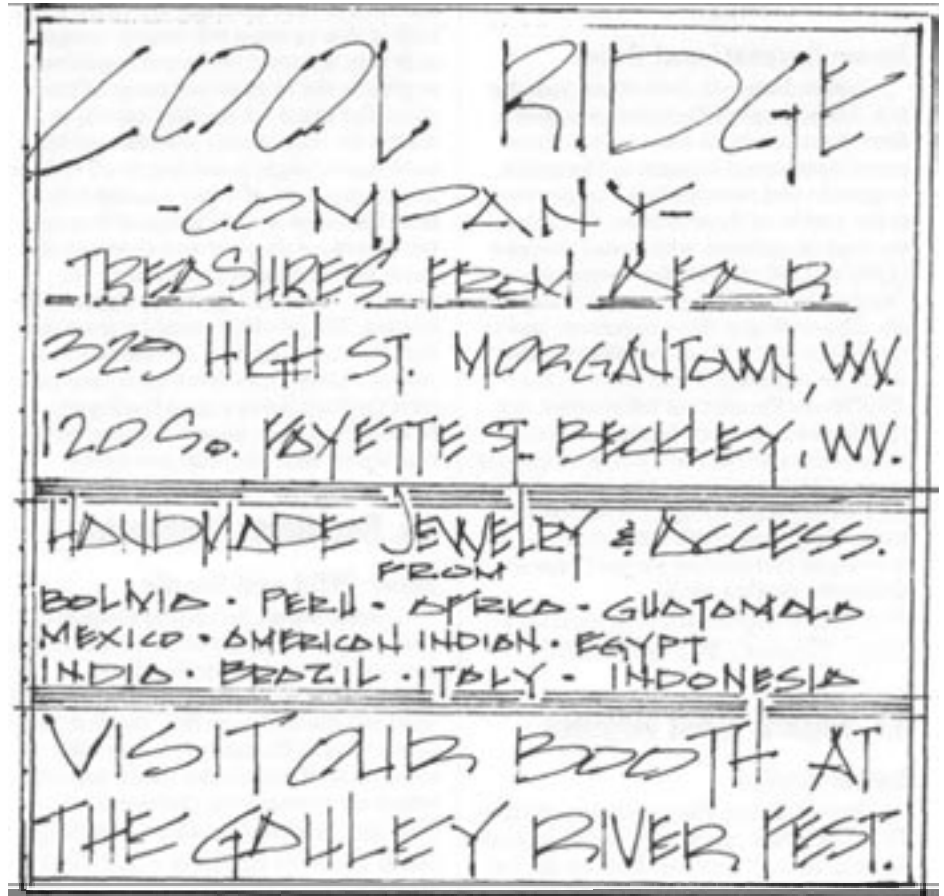 COOL RIDGE
-COMPANY-
TREASURES FROM AFAR
329 HIGH ST. MORGANTOWN, WV.
120 So. FAYETTE ST. BECKLEY, WV.
HANDMADE JEWELRY & ACCESS.
FROM
BOLIVIA · PERU · AFRICA · GUATAMALA
MEXICO · AMERICAN INDIAN · EGYPT
INDIA · BRAZIL · ITALY · INDONESIA
VISIT OUR BOOTH AT
THE GAULEY RIVER FEST.